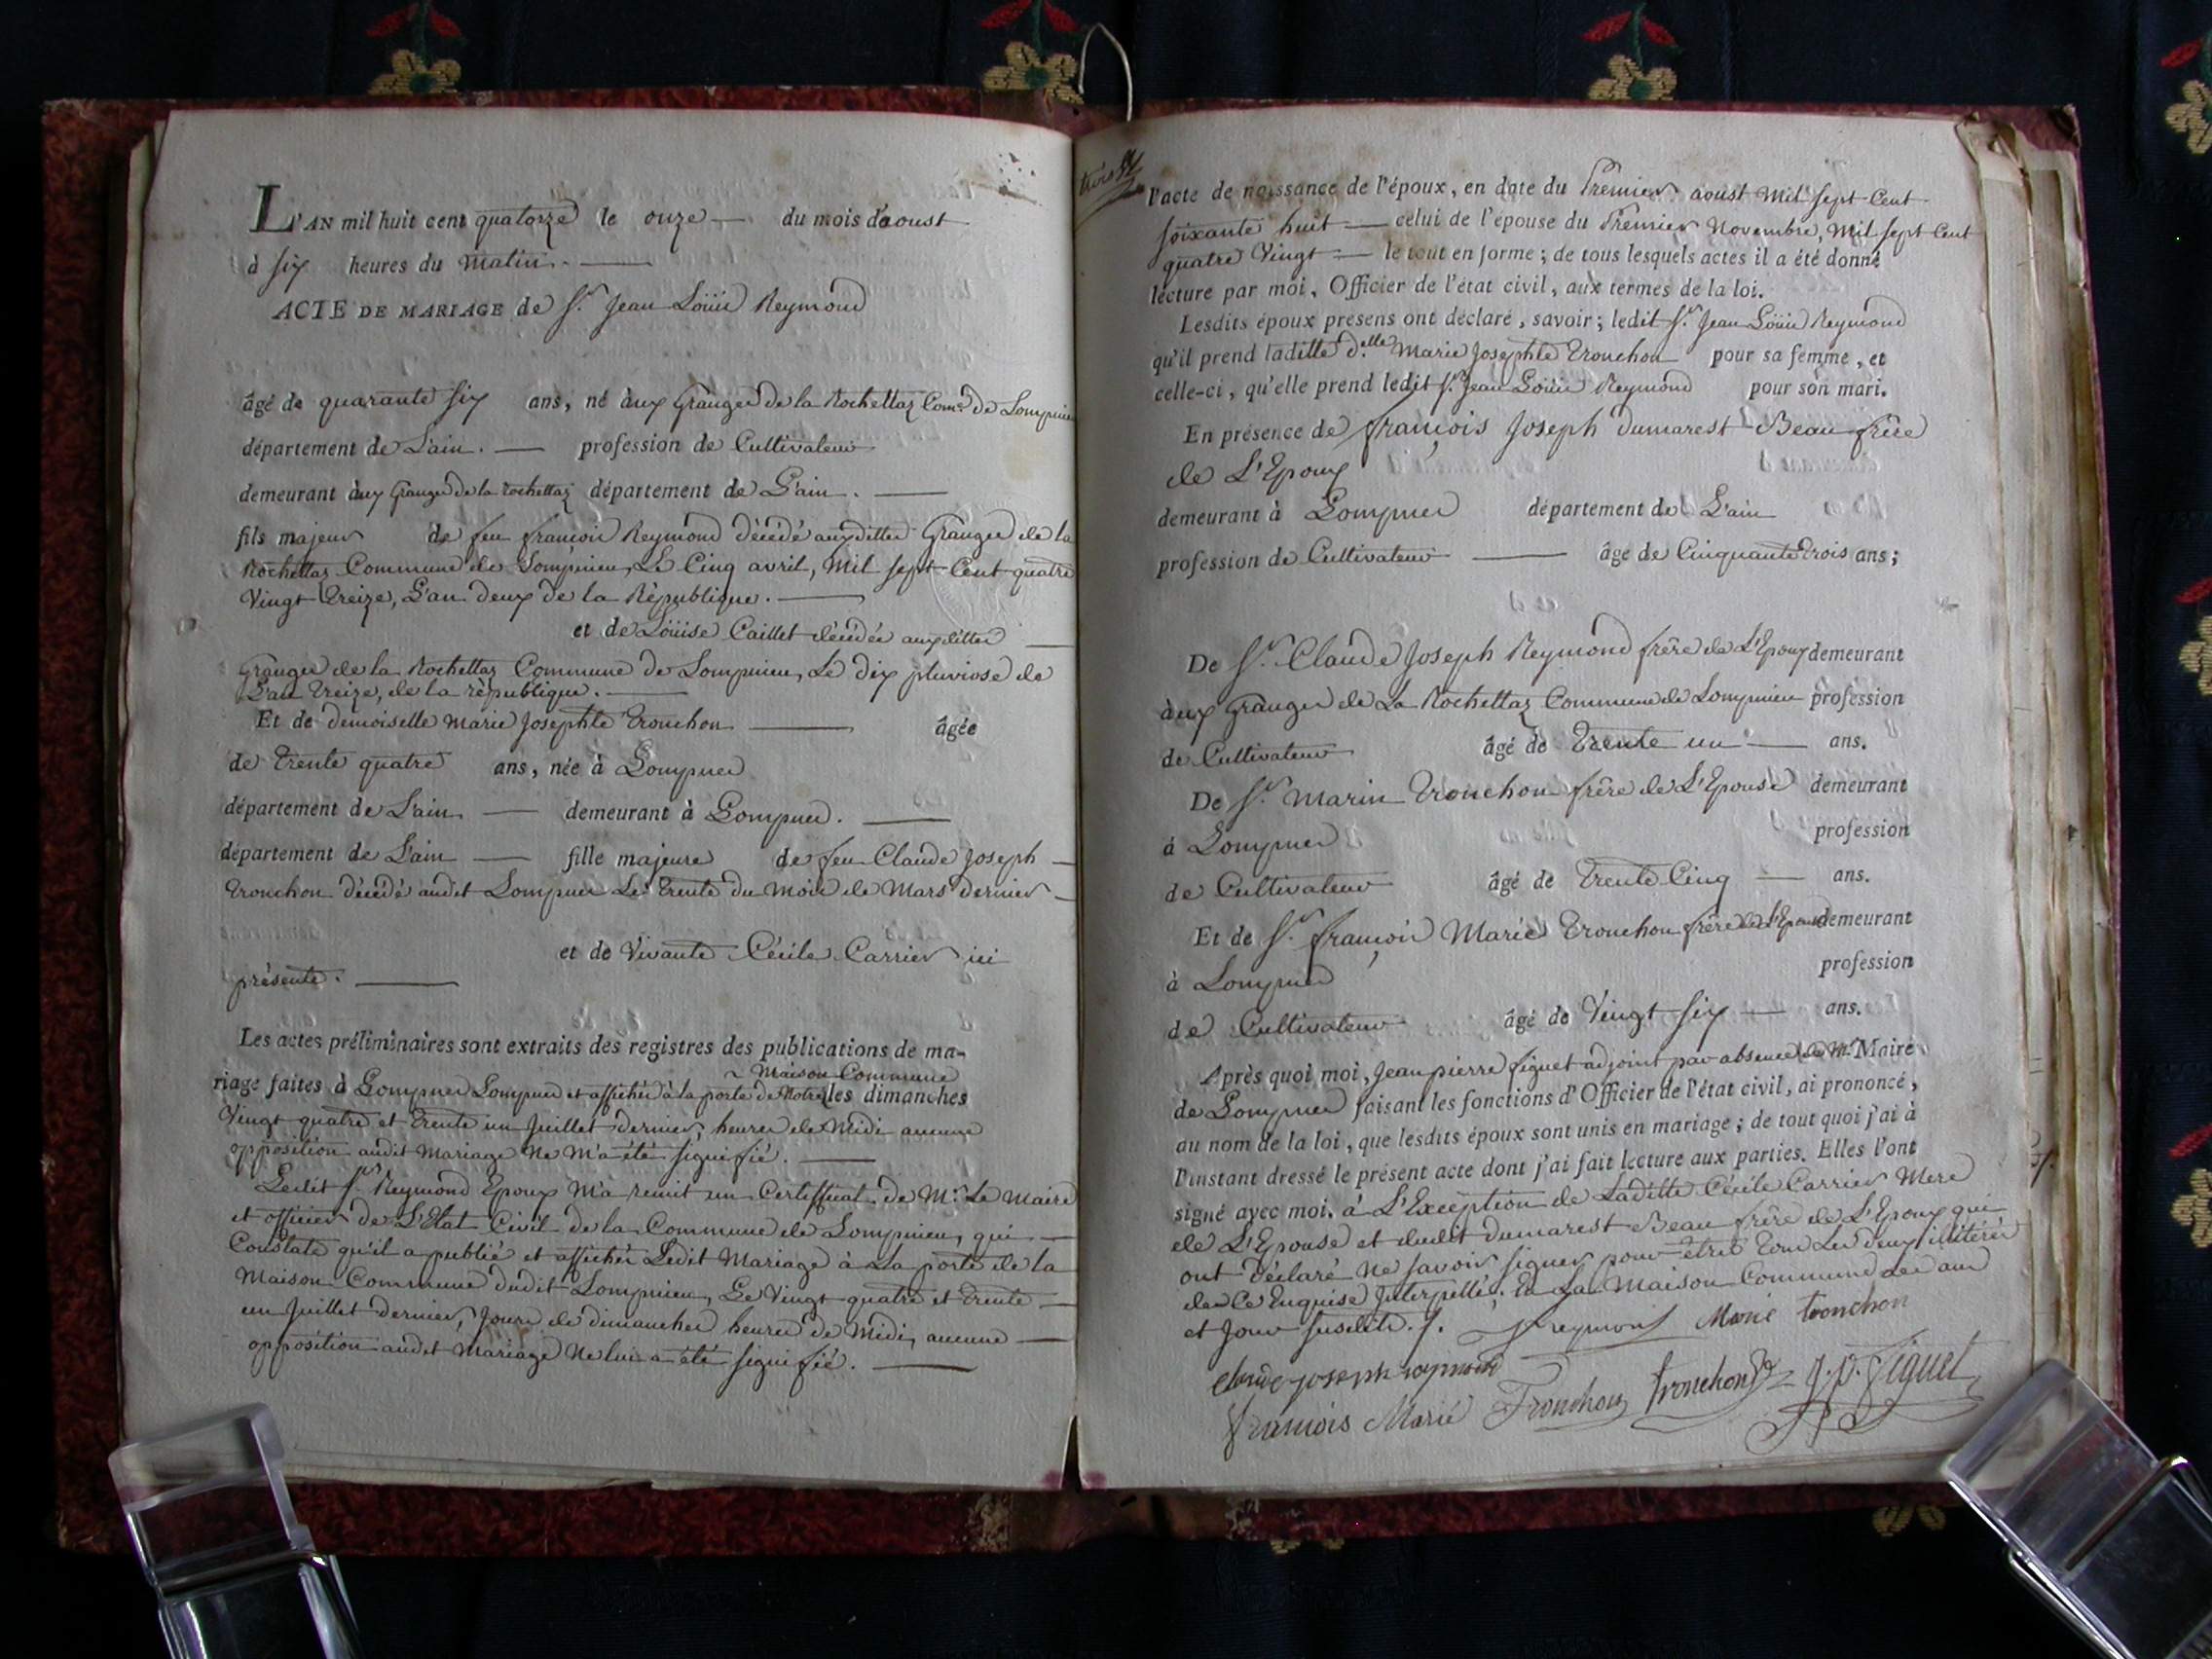 L'AN mil huit cent quatorze le onze du mois d'aoust
à six heures du matin.
ACTE DE MARIAGE de Sr. Jean Loüis Reymond
âgé de quarante six ans, né aux Granges de la Rochettaz Come. de Lompnieu
département de L'ain. profession de Cultivateur
demeurant aux Granges de la Rochettaz département de L'ain.
fils majeur de feu françois Reymond décédé auxdittes Granges de la
Rochettaz Commune de Lompnieu, Le Cinq avril, mil sept Cent quatre
Vingt treize, L'an deux de la République.
et de Loüise Caillet décédée auxdittes
Granges de la Rochettaz Commune de Lompnieu, Le dix pluviose de
L'an treize, de la république.
Et de demoiselle Marie Josephte Tronchon âgée
de trente quatre ans, née à Lompnes
département de L'ain. demeurant à Lompnes.
département de L'ain fille majeure de feu Claude Joseph
Tronchon décédé audit Lompnes Le trente du mois de Mars dernier
et de Vivante Cécile Carrier ici
présente.
Les actes préliminaires sont extraits des registres des publications de ma-
Maison Commune
riage faites à Lompnes Lompnes et affichés à la porte de Notre les dimanches
Vingt quatre et trente un Juillet dernier, heures de Midi aucune
opposition audit Mariage Ne m'a été signifié.
Ledit Sr. Reymond Epoux m'a remit un Certifficat de Mr. Le Maire
et officier de L'Etat Civil de la Commune de Lompnieu, qui
Constate qu'il a publié et affichér Ledit Mariage à La porte de la
Maison Commune dudit Lompnieu, Le Vingt quatre et trente
un Juillet dernier, Jours de dimanches heures de Midi, aucune
opposition audit Mariage Ne lui a été signifié.
l'acte de naissance de l'époux, en date du Premier aoust Mil sept Cent
soixante huit celui de l'épouse du Premier Novembre, Mil sept Cent
quatre Vingt le tout en forme ; de tous lesquels actes il a été donné
lecture par moi, Officier de l'état civil, aux termes de la loi.
Lesdits époux présens ont déclaré, savoir ; ledit Sr. Jean Loüis Reymond
qu'il prend laditte d.elle Marie Josephte Tronchon pour sa femme, et
celle-ci, qu'elle prend ledit Sr. Jean Loüis Reymond pour son mari.
En présence de françois Joseph dumarest Beau frère
de L'Epoux
demeurant à Lompnes département de L'ain
profession de Cultivateur âgé de Cinquante trois ans ;
De Sr. Claude Joseph Reymond frère de L'Epoux demeurant
aux Granges de La Rochettaz Commune de Lompnieu profession
de Cultivateur âgé de trente un ans.
De Sr. Marin Tronchon frère de L'Epouse demeurant
à Lompnes profession
de Cultivateur âgé de trente Cinq ans.
Et de Sr. françois Marie Tronchon frère de L'Epouse demeurant
à Lompnes profession
de Cultivateur âgé de Vingt six ans.
Après quoi moi, Jean pierre figuet adjoint par absence de Mr. Maire
de Lompnes faisant les fonctions d'Officier de l'état civil, ai prononcé,
au nom de la loi, que lesdits époux sont unis en mariage ; de tout quoi j'ai à
l'instant dressé le présent acte dont j'ai fait lecture aux parties. Elles l'ont
signé avec moi. à L'Exception de Laditte Cécile Carrier Mere
de L'Epouse et dudit dumarest Beau frère de L'Epoux qui
ont déclaré ne savoir signer pour être tous les deux illitérés
de Ce Enquise Interpellés, En La Maison Commune Les an
et Jour susdits.
J L reymond Marie tronchon
claude joseph reymond
françois Marie Tronchon tronchon J. P. Figuet